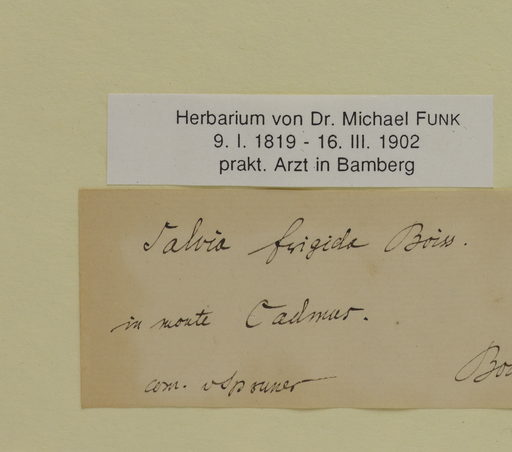 Herbarium von Dr. Michael FUNK
9. I. 1819 - 16. III. 1902
prakt. Arzt in Bamberg
Salvia frigida Boiss.
in monte Cadmus.
com. v Spruner